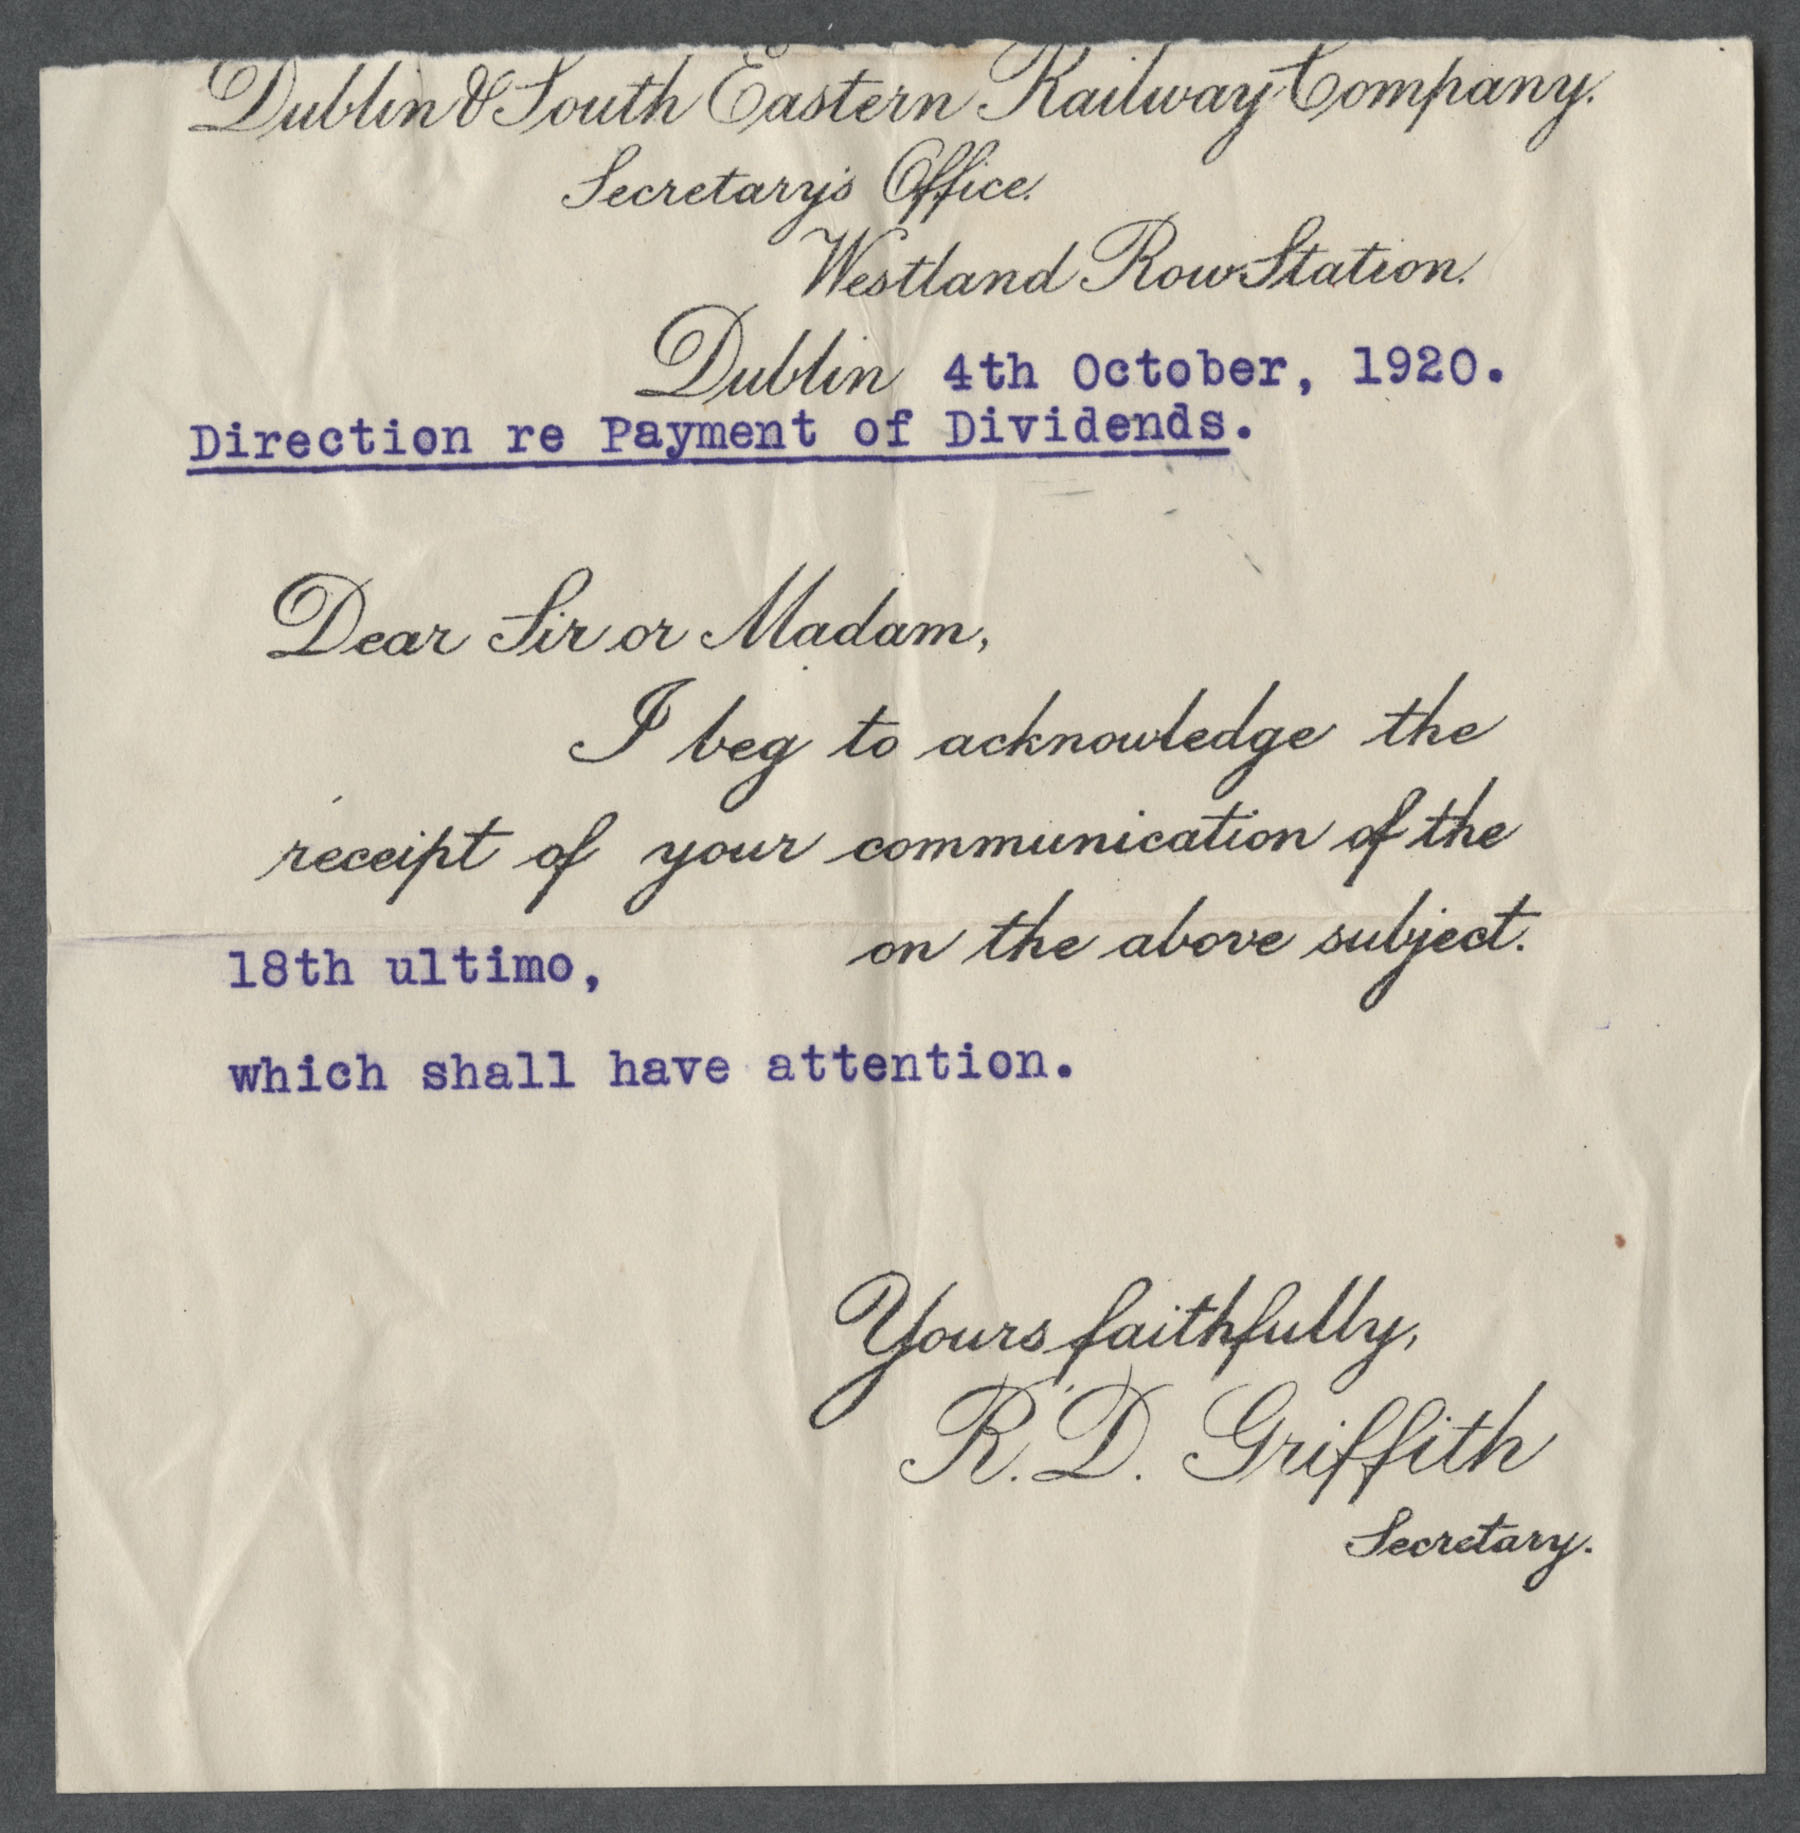 Dublin & South Eastern Railway Company.
Secretary's Office.
Westland Row Station.
Dublin 4th October, 1920.
Direction re Payment of Dividends.
Dear Sir or Madam,
I beg to acknowledge the
receipt of your communication of the
18th ultimo, on the above subject.
which shall have attention.
Yours faithfully,
R. D. Griffith
Secretary.